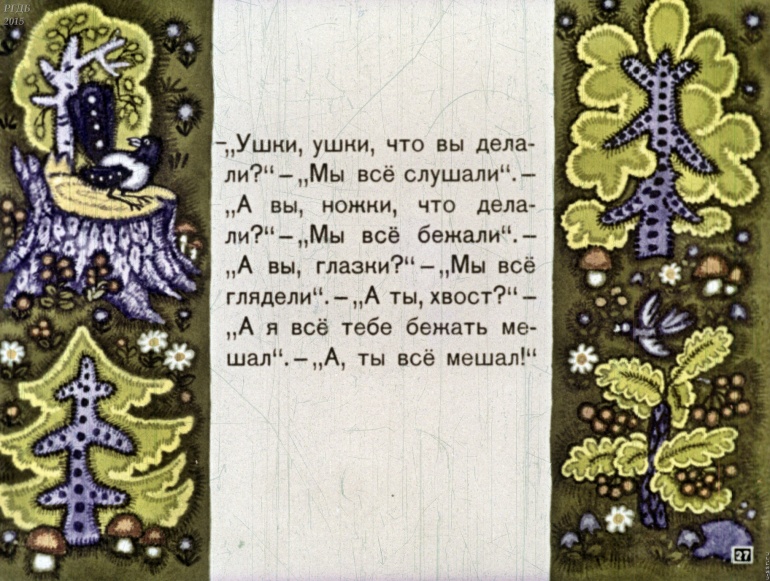 РГДБ
2015
–„Ушки, ушки, что вы дела-
ли?“ – „Мы всё слушали“. –
„А вы, ножки, что дела-
ли?“ – „Мы всё бежали“. –
„А вы, глазки?“ – „Мы всё
глядели“. – „А ты, хвост?“ –
„А я всё тебе бежать ме-
шал“. – „А, ты всё мешал!“
27